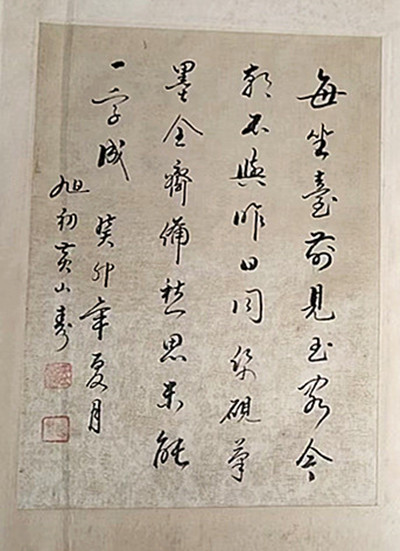 每坐臺前見玉容今
朝不與昨日同紙硯筆
墨全齊備愁思未能
一字成 癸卯年夏月
旭初黃山壽